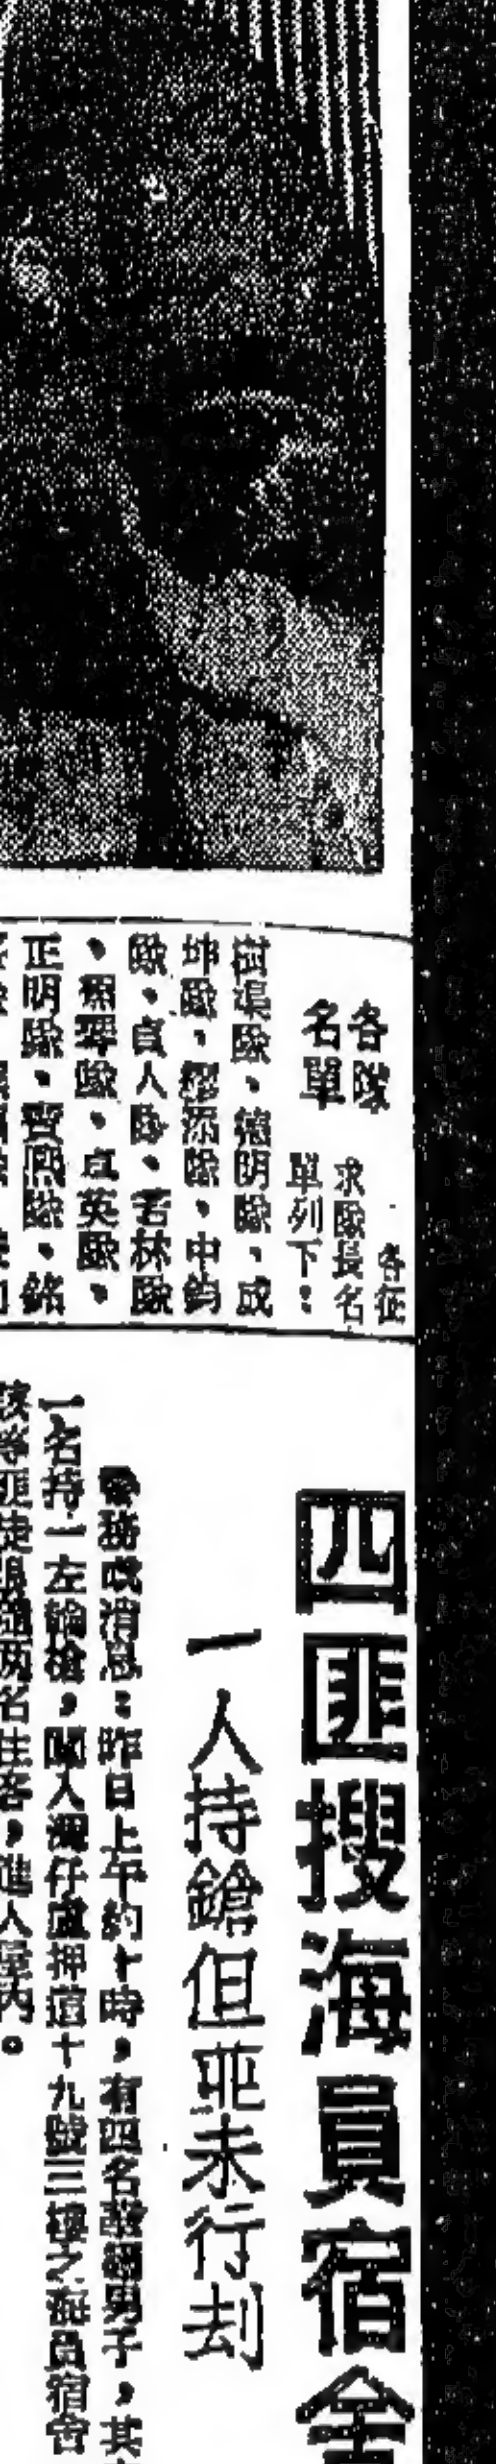 各隊
名單
各征
求隊長名
單列下：
樹渠隊、德明隊、成
坤隊，穆添隊，中鈞
隊、貞人隊、若林隊
、佩琴隊、貞英隊，
正明隊、齊熙隊、銘
四匪搜海員宿舍
一人持鎗但並未行刦
警務處消息：昨日上午約十時，有四名部網男子，其
一名持一左輪槍，闖入灣仔盧押道十九號三樓之海員宿舍
該等匪徒跟隨兩名住客，進入屋內。